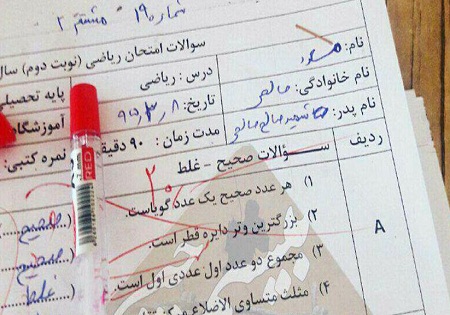 شماره ۱۹۰ - مشتق ۲
سوالات امتحان ریاضی (نوبت دوم) سال
نام:
درس : ریاضی
پایه تحصیلی
نام خانوادگی: صالحی
تاریخ: ۹۵,۳,۸
آموزشگاه
نام پدر: شهید صالح صالحی
مدت زمان : ۹۰ دقیقه
نمره کتبی:
ردیف
سؤالات صحیح - غلط
۲۰
A
۱) هر عدد صحیح یک عدد گویاست. (......صحیح
۲) بزرگترین وتر دایره قطر است. (......صحیح
۳) مجموع دو عدد اول عددی اول است. (......غلط
۴) مثلث متساوی الاضلاع مرکز
RED